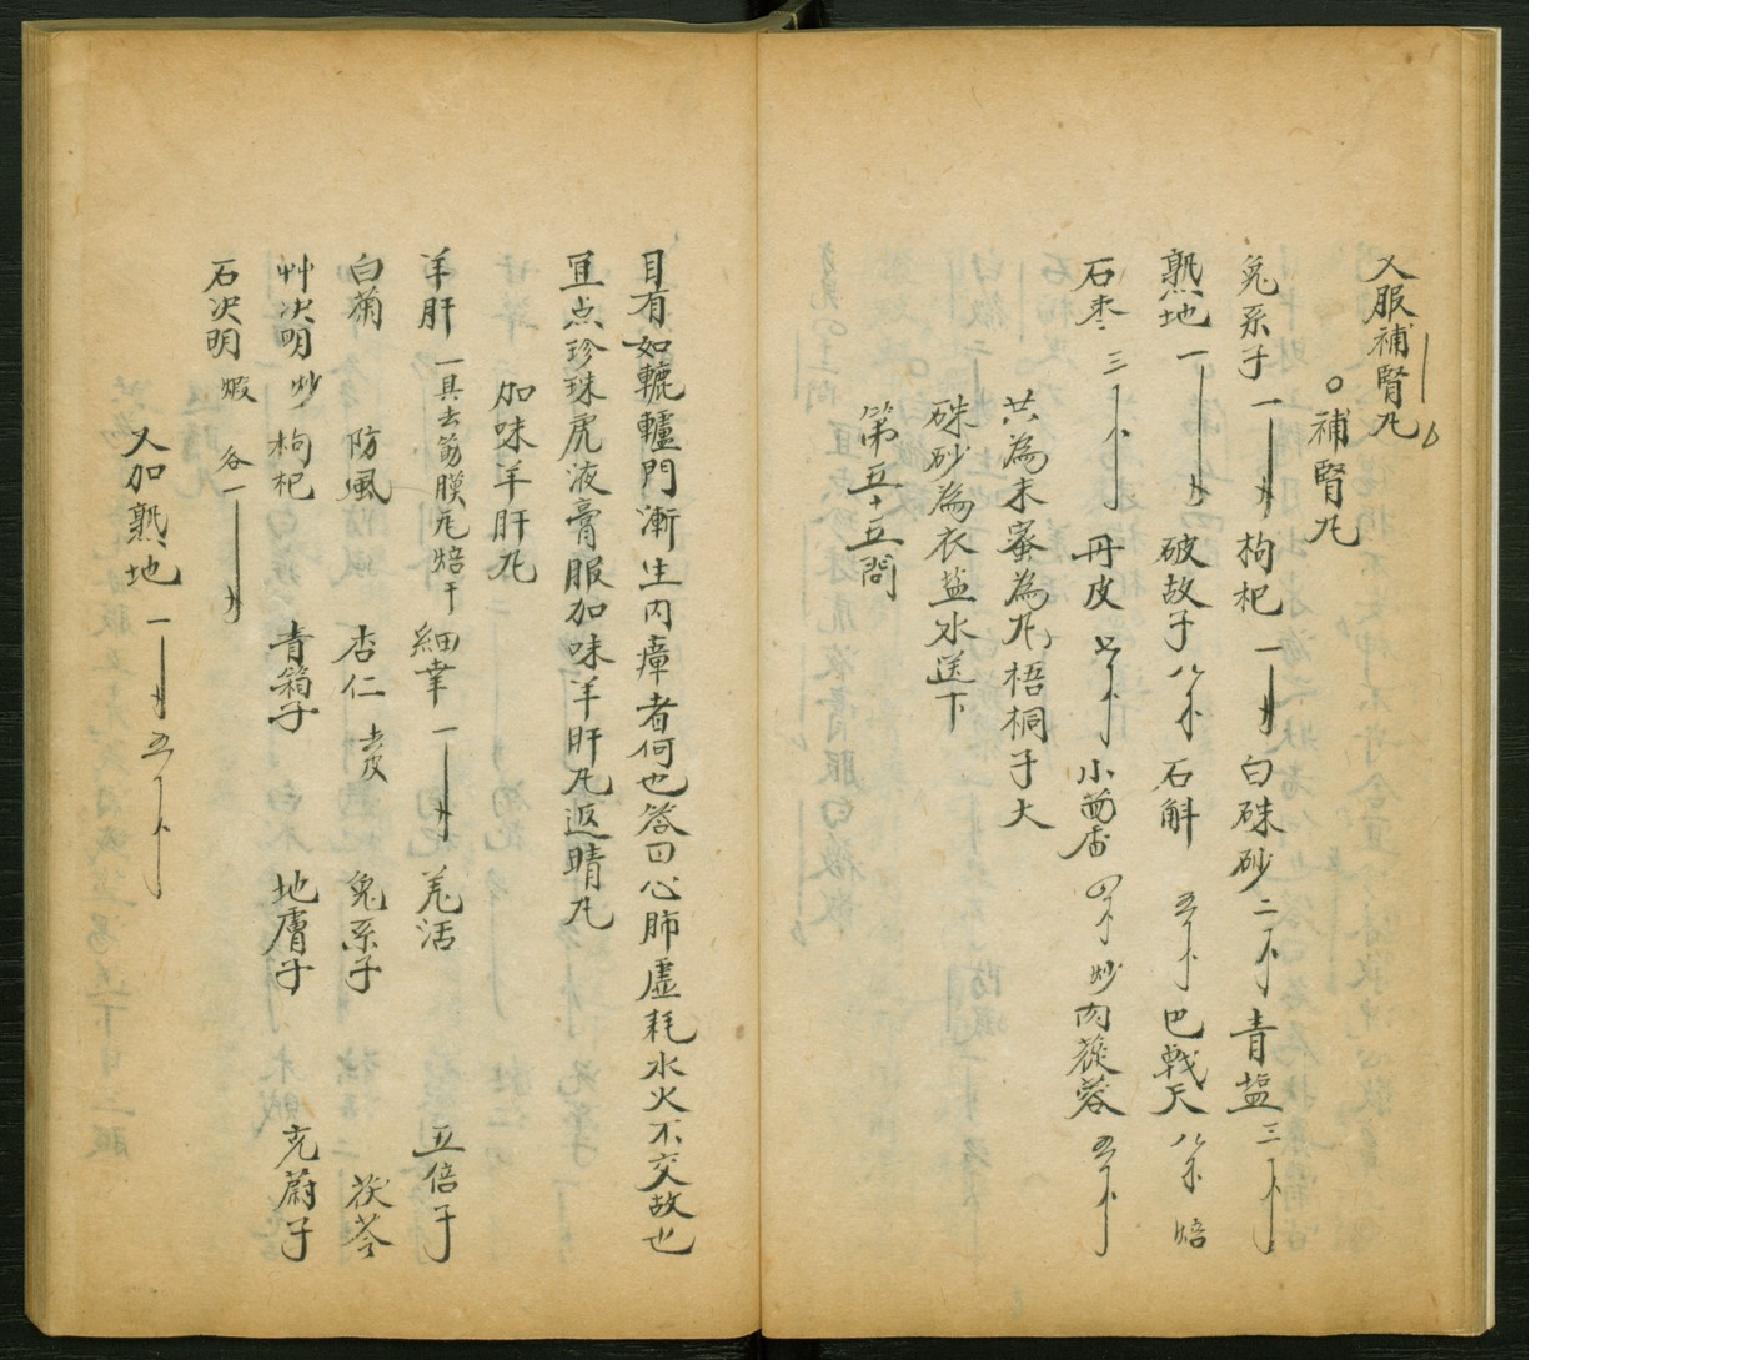 又服補腎丸
○補腎丸
兔糸子 一 枸杞 一 白硃砂 二 青塩 三
熟地 一 破故子 八 石斛 五 巴戟天 八 焙
石枣 三 丹皮 小茴香 四 炒 肉蓯蓉 五
共為末蜜為丸梧桐子大
硃砂為衣盐水送下
第五十五問
目有如轆轤門漸生內瘴者何也答曰心肺虛耗水火不交故也
宜点珍珠虎液膏服加味羊肝丸返晴丸
加味羊肝丸
羊肝 一具去筋膜瓦焙干 細辛 一 羌活 五倍子
白菊 防風 杏仁 去皮 兔糸子 茯苓
艸决明 炒 枸杞 青箱子 地膚子 充蔚子
石决明 煆 各一
又加熟地 一 五